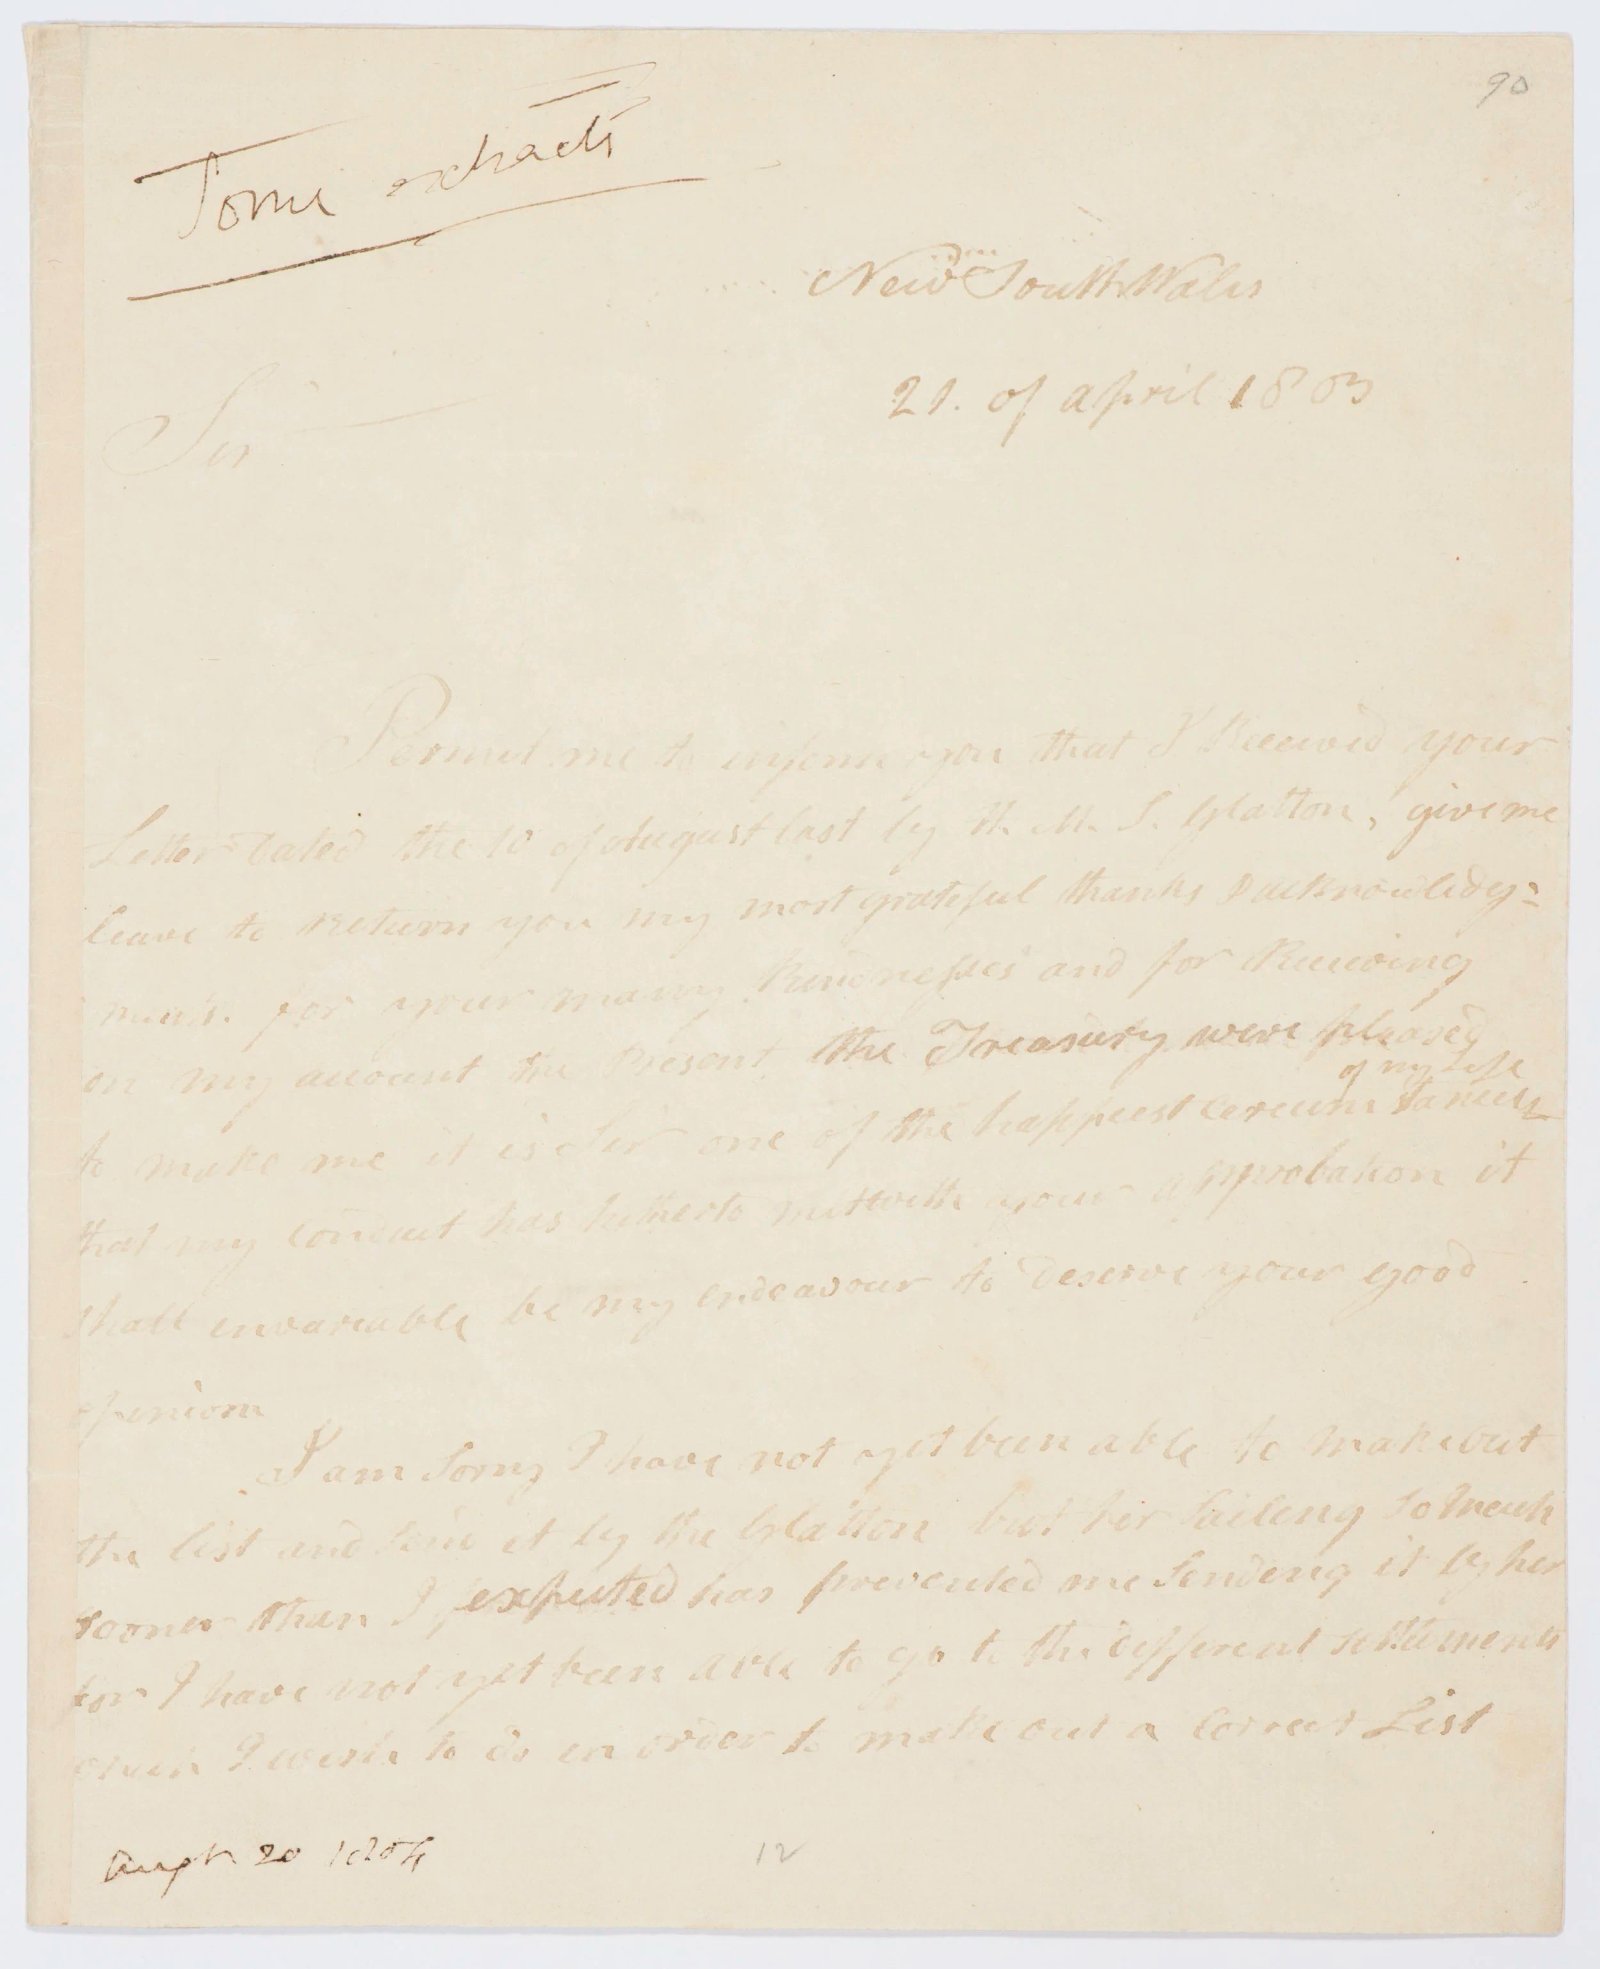 90
Some extracts
New South Wales
21. of april 1803
Sir
Permit me to inform you that I Received your
Letter Dated the 10 of August last by H. M. S. Glatton, give me
leave to Return you my most grateful thanks & acknowledg=
ments. for your many Kindnesses and for Receiving
on my account the Present the Treasury were pleased
of my Life
to make me it is Sir one of the happiest Circumstances
that my conduct has hitherto met with your approbation it
shall envariable be my endeavour to Deserve your good
opinion
I am Sorry I have not yet been able to make out
the list and Send it by the Glatton but her Saileng So Much
sooner than I expected has prevented me Sendeng it by her
for I have not yet been able to go to the different settlements
which I wish to do in order to make out a Correct List
Augt. 20 1804
12